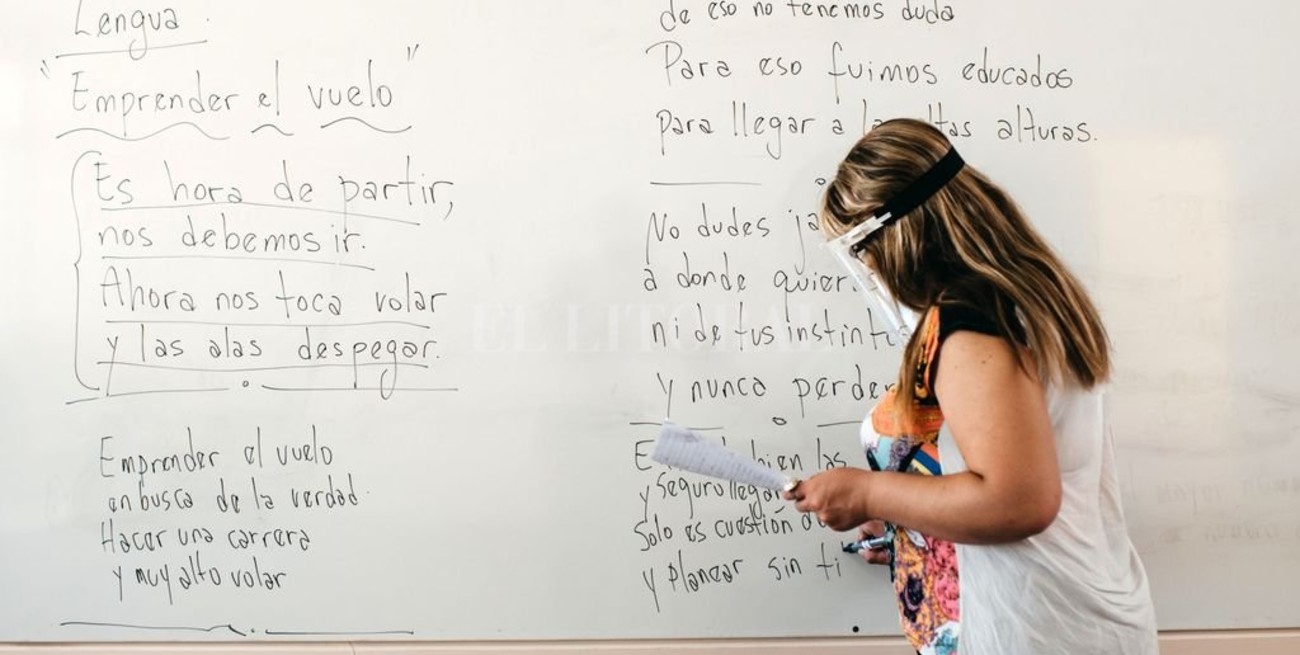 Lengua.
"Emprender el vuelo"
Es hora de partir,
nos debemos ir.
Ahora nos toca volar
y las alas despegar.
Emprender el vuelo
en busca de la verdad.
Hacer una carrera
y muy alto volar
de eso no tenemos duda
Para eso fuimos educados
para llegar a altas alturas.
No dudes
a donde quier
ni de tus instint
y nunca perder
bien las
y seguro llegar
Solo es cuestión
y planear sin ti
EL LITORAL